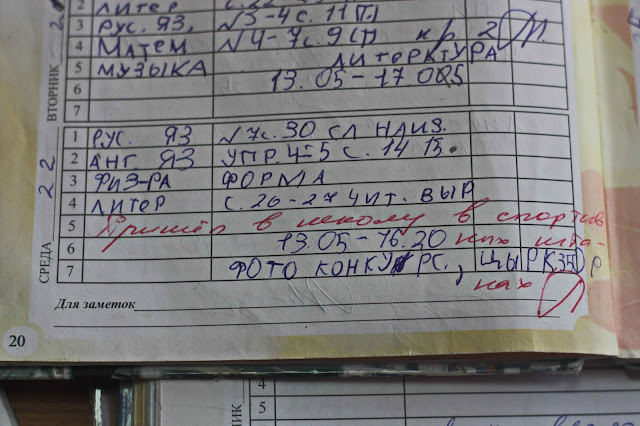 2 ЛИТЕР
3 РУС. ЯЗ, №3-4 с. 11 П.
4 МАТЕМ №4-7 с. 9 кр 2
ЛИТОРКТУРА
5 МУЗЫКА
6 13.05-17.005
7
ВТОРНИК
1 РУС. ЯЗ №7с. 30 СЛ НАИЗ.
2 АНГ ЯЗ УПР 4-5 с. 14 15.
3 ФИЗ-РА ФОРМА
4 ЛИТЕР с. 26-27 ЧИТ. ВЫР
5 Пришёл в школу в спортив
6 13.05-16.20 ных шта-
7 ФОТО КОНКУРС., ЦЫРК 350 Р
нах
СРЕДА 22
Для заметок
20
4
5
НИК